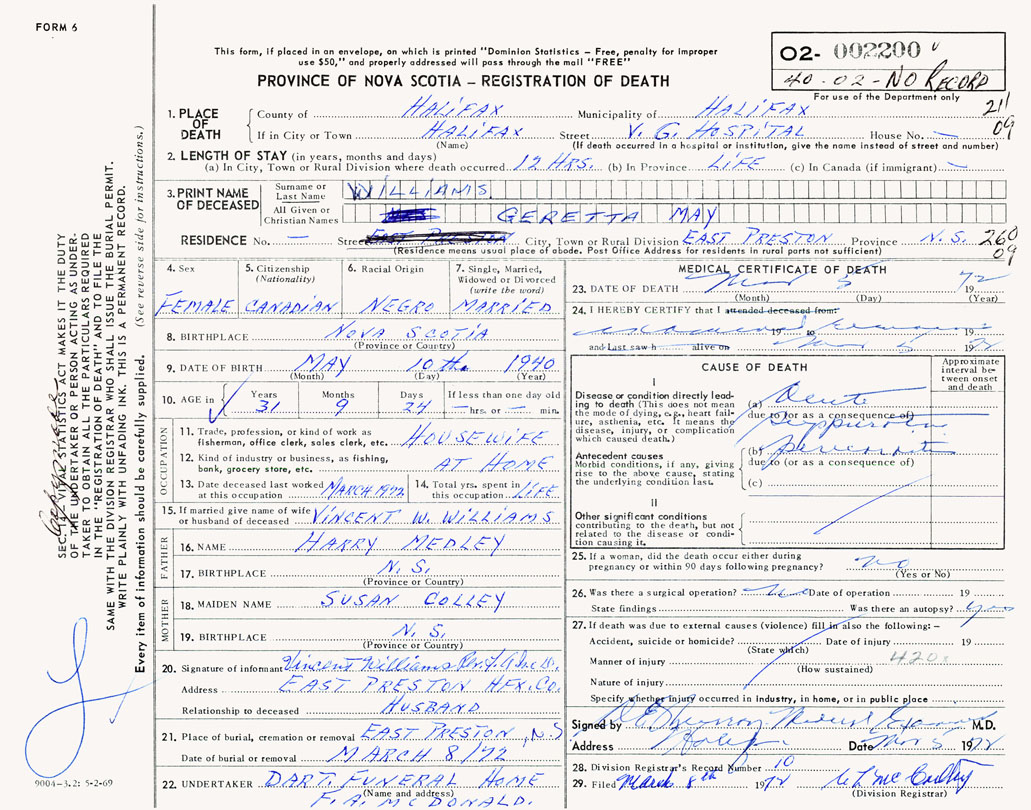 FORM 6
This form, if placed in an envelope, on which is printed "Dominion Statistics – Free, penalty for improper
use $50," and properly addressed will pass through the mail "FREE"
PROVINCE OF NOVA SCOTIA – REGISTRATION OF DEATH
O2- 002200
40-02-NO RECORD
For use of the Department only
211
09
1. PLACE OF DEATH
County of HALIFAX Municipality of HALIFAX
If in City or Town HALIFAX Street V. G. HOSPITAL House No. —
(Name) (If death occurred in a hospital or institution, give the name instead of street and number)
2. LENGTH OF STAY (in years, months and days)
(a) In City, Town or Rural Division where death occurred 12 HRS. (b) In Province LIFE (c) In Canada (if immigrant) —
3. PRINT NAME OF DECEASED
Surname or Last Name WILLIAMS
All Given or Christian Names GERETTA MAY
RESIDENCE No. — Street EAST PRESTON City, Town or Rural Division EAST PRESTON Province N.S. 260
09
(Residence means usual place of abode. Post Office Address for residents in rural parts not sufficient)
4. Sex
FEMALE
5. Citizenship
(Nationality)
CANADIAN
6. Racial Origin
NEGRO
7. Single, Married,
Widowed or Divorced
(write the word)
MARRIED
8. BIRTHPLACE NOVA SCOTIA
(Province or Country)
9. DATE OF BIRTH MAY 10th 1940
(Month) (Day) (Year)
10. AGE in Years Months Days If less than one day old
31 9 24 — hrs. or — min.
OCCUPATION
11. Trade, profession, or kind of work as
fisherman, office clerk, sales clerk, etc. HOUSEWIFE
12. Kind of industry or business, as fishing,
bank, grocery store, etc. AT HOME
13. Date deceased last worked
at this occupation MARCH 1972
14. Total yrs. spent in
this occupation LIFE
15. If married give name of wife
or husband of deceased VINCENT W. WILLIAMS
FATHER
16. NAME HARRY MEDLEY
17. BIRTHPLACE N.S.
(Province or Country)
MOTHER
18. MAIDEN NAME SUSAN COLLEY
19. BIRTHPLACE N.S.
(Province or Country)
20. Signature of informant Vincent Williams
Address EAST PRESTON HFX. CO.
Relationship to deceased HUSBAND
21. Place of burial, cremation or removal EAST PRESTON, N.S
Date of burial or removal MARCH 8/72
22. UNDERTAKER DART. FUNERAL HOME
(Name and address)
F. A. MCDONALD.
MEDICAL CERTIFICATE OF DEATH
23. DATE OF DEATH Mar 5 1972
(Month) (Day) (Year)
24. I HEREBY CERTIFY that I attended deceased from:
19 to 19
and Last saw h alive on Mar 5 1972
CAUSE OF DEATH
Approximate
interval be-
tween onset
and death
I
Disease or condition directly lead-
ing to death (This does not mean
the mode of dying, e.g., heart fail-
ure, asthenia, etc. It means the
disease, injury, or complication
which caused death.)
(a) Acute
due to (or as a consequence of)
Antecedent causes
Morbid conditions, if any, giving
rise to the above cause, stating
the underlying condition last.
(b)
due to (or as a consequence of)
(c)
II
Other significant conditions
contributing to the death, but not
related to the disease or condi-
tion causing it.
25. If a woman, did the death occur either during
pregnancy or within 90 days following pregnancy? no
(Yes or No)
26. Was there a surgical operation? no Date of operation 19
State findings Was there an autopsy? yes
27. If death was due to external causes (violence) fill in also the following: –
Accident, suicide or homicide? Date of injury 19
(State which)
Manner of injury 420
(How sustained)
Nature of injury
Specify whether injury occurred in industry, in home, or in public place
Signed by Medical Examiner M.D.
Address Halifax Date Mar 5 1972
28. Division Registrar's Record Number 10
29. Filed March 8th 1972
(Division Registrar)
SEC. 14 VITAL STATISTICS ACT MAKES IT THE DUTY
OF THE UNDERTAKER OR PERSON ACTING AS UNDER-
TAKER TO OBTAIN ALL THE PARTICULARS REQUIRED
IN THE "REGISTRATION OF DEATH" AND TO FILE THE
SAME WITH THE DIVISION REGISTRAR WHO SHALL ISSUE THE BURIAL PERMIT.
WRITE PLAINLY WITH UNFADING INK. THIS IS A PERMANENT RECORD.
Every item of information should be carefully supplied. (See reverse side for instructions.)
9004-3.2: 5-2-69